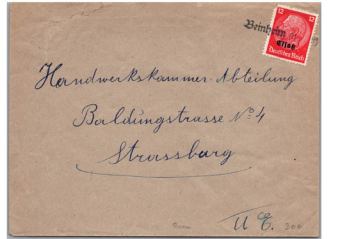 12 12
Beinheim
Elsaß
Deutsches Reich
Handwerkskammer-Abteilung
Baldungstrasse No 4
Strassburg
U E.
300